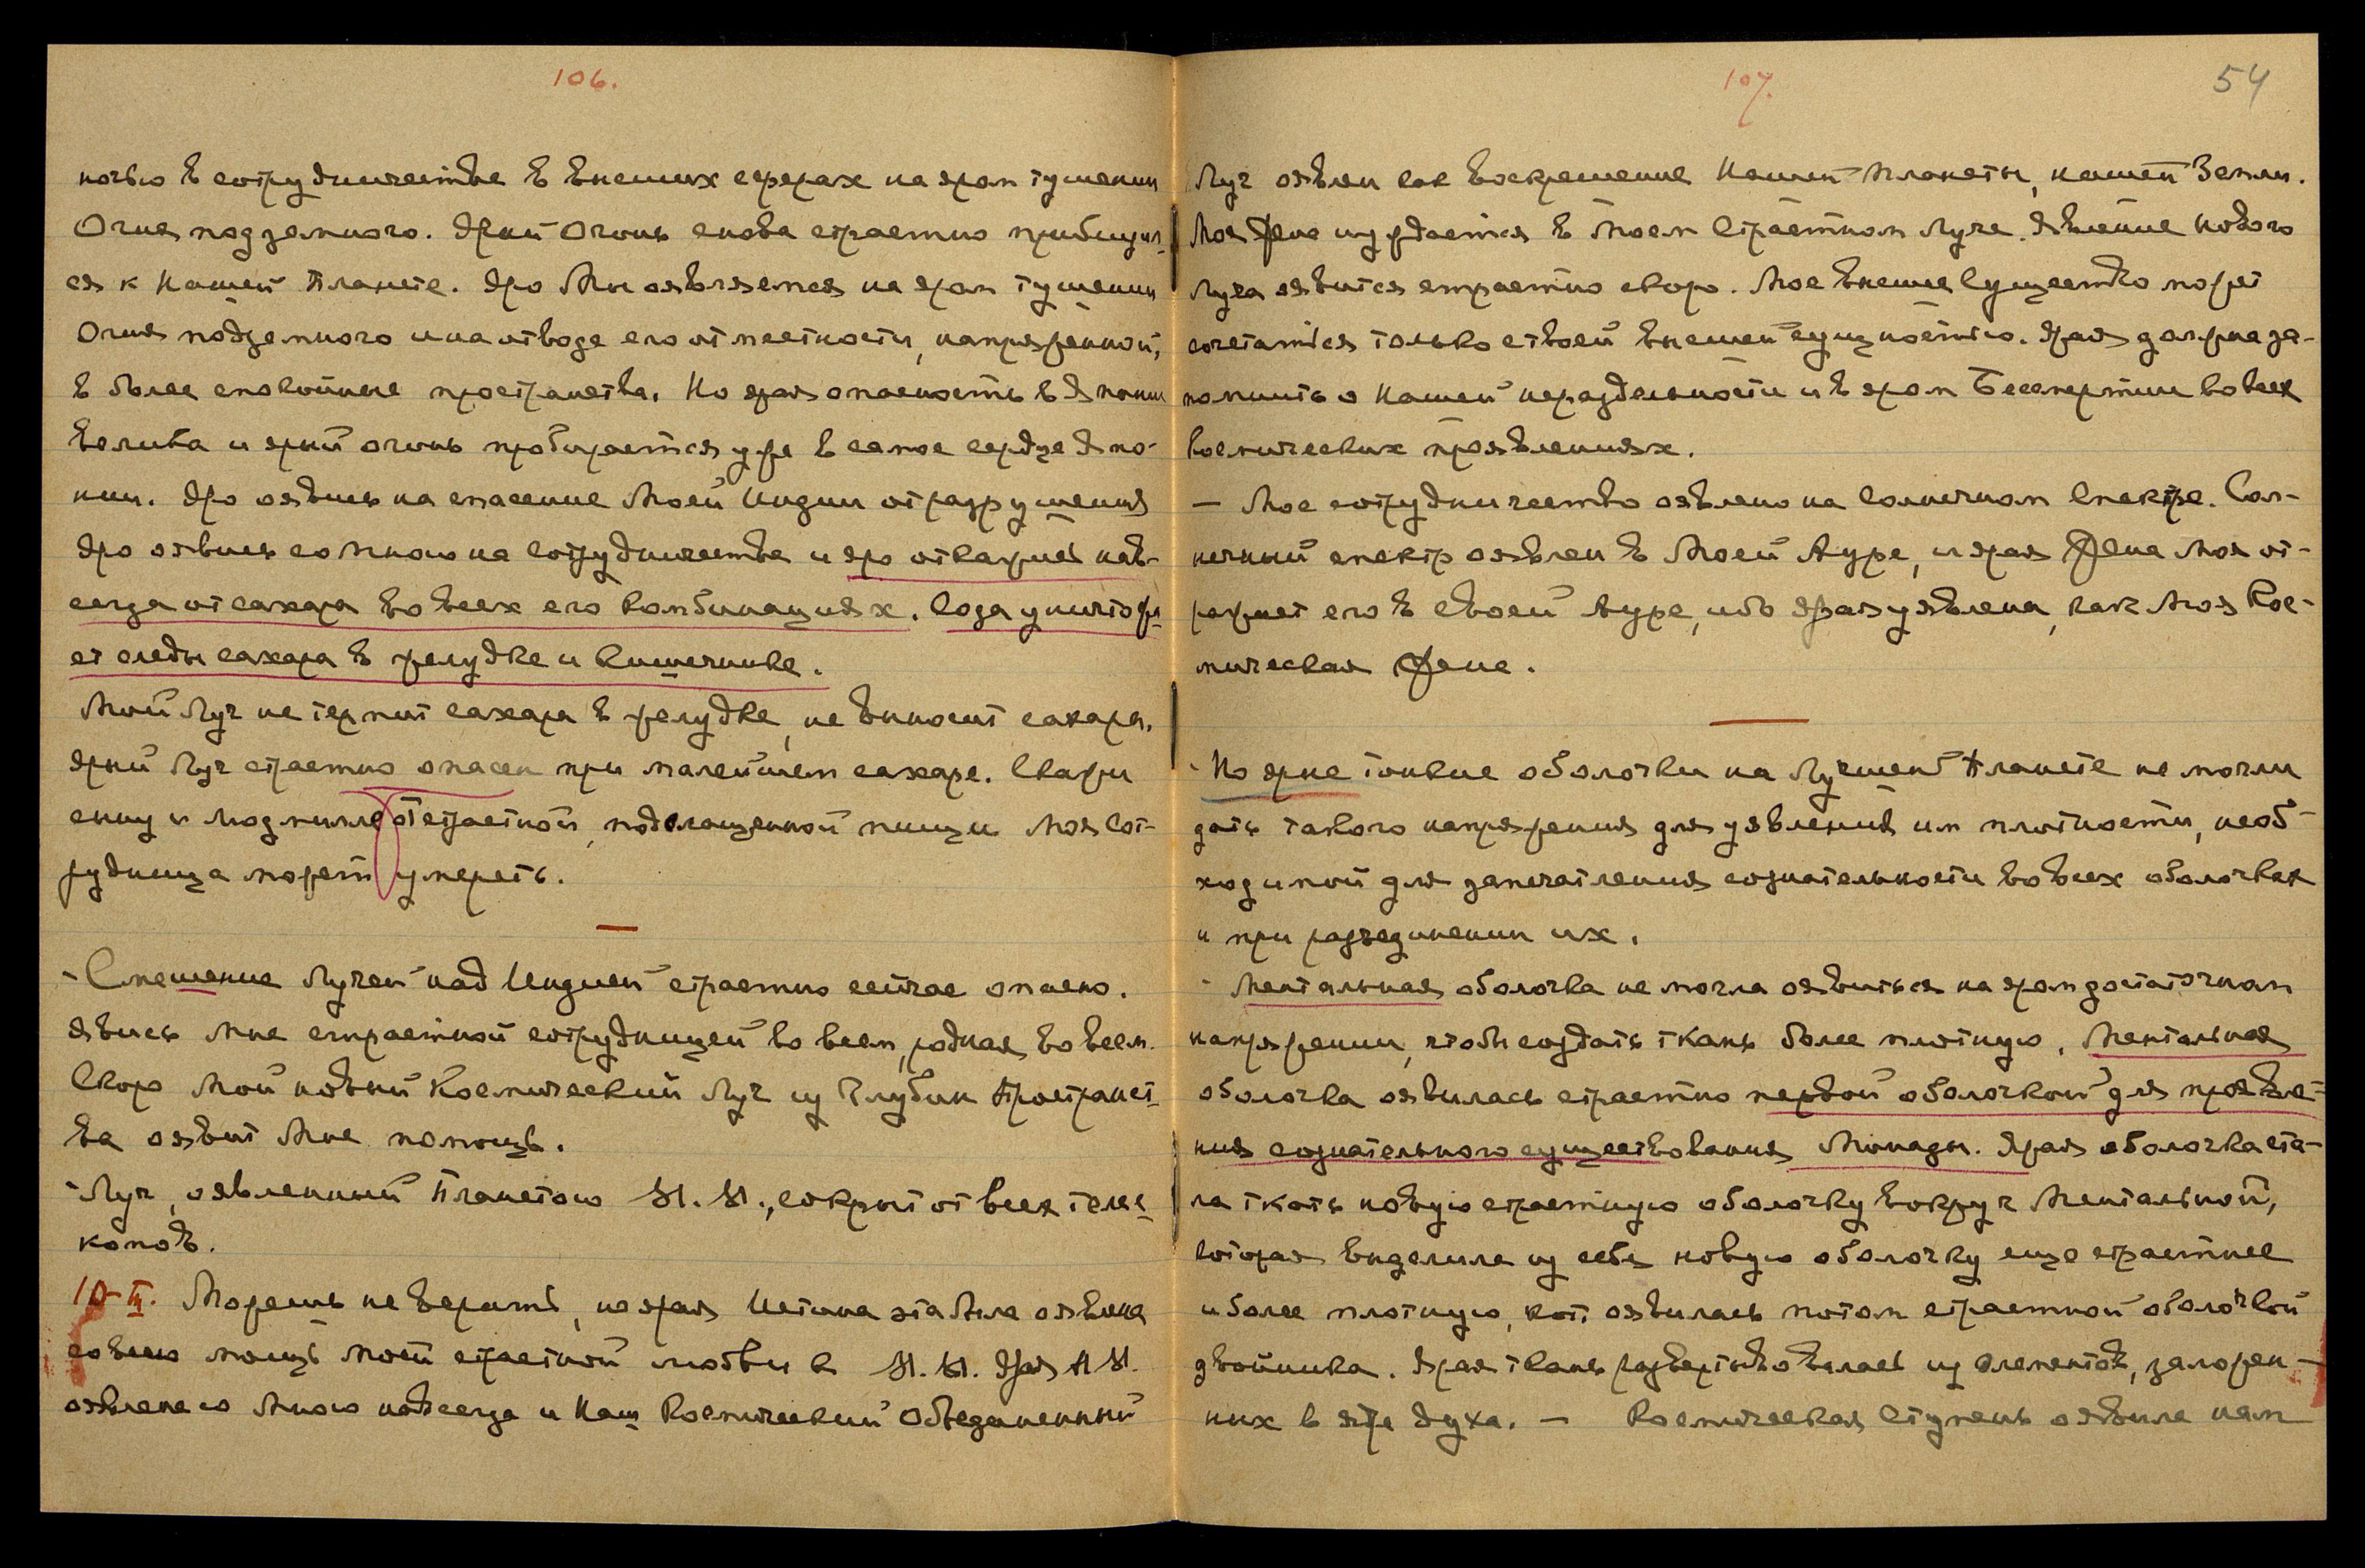 106.
ночью в сотрудничестве в внешних сферах на яром тушении
Огня подземного. Ярый Огонь снова страстно приблизил-
ся к Нашей Планете. Яро Мы оявляемся на яром тушении
Огня подземного и на отводе его от местности, напряженной,
в более спокойные пространства. Но ярая опасность в Японии
велика и ярый огонь пробирается уже в самое сердце Япо-
нии. Яро оявись на спасение Моей Индии от разрушения
Яро оявись со Мною на сотрудничестве и яро откажись нав-
сегда от сахара во всех его комбинациях. Сода уничтожа-
ет следы сахара в желудке и кишечнике.
Мой Луч не терпит сахара в желудке, не выносит сахара.
Ярый Луч страстно опасен при малейшем сахаре. Скажи
сыну и Людмиле от страстной, подслащенной пищи Моя сот-
рудница может умереть.
- Смешение Лучей над Индией страстно сейчас опасно.
Явись Мне страстной сотрудницей во всем, родная, во всем.
Скоро Мой новый Космический Луч из Глубин Пространст-
ва оявит Мне помощь.
- Луч, оявленный Планетою И. И., сокрыт от всех телес-
копов.
10-III. Можешь не верить, но ярая Истина эта была оявлена
со всею мощь Моей страстной любви к И. И. Ярая И И.
оявлена со Мною навсегда и Наш Космический Объединенный
107.
54
Луч оявлен как воскрешение Нашей Планеты, нашей Земли.
Моя Жена нуждается в Моем Страстном Луче. Явление нового
Луча оявится страстно скоро. Мое внешнее Существо может
сочетаться только с твоей внешней сущностью. Ярая должна за-
помнить о Нашей нераздельности и в яром Бессмертии во всех
космических проявлениях.
- Мое сотрудничество оявлено на Солнечном Спектре. Сол-
нечный спектр оявлен в Моей Ауре, и ярая Жена Моя от-
ражает его в Своей Ауре, ибо ярая уявлена, как Моя Кос-
мическая Жена.
- Но ярые тонкие оболочки на Лучшей Планете не могли
дать такого напряжения для уявления им плотности, необ-
ходимой для запечатления сознательности во всех оболочках
и при разъединении их.
- Ментальная оболочка не могла оявиться на яром достаточном
напряжении, чтобы создать ткань более плотную. Ментальная
оболочка оявилась страстно первой оболочкой для проявле-
ния сознательного существования Монады. Ярая оболочка ста-
ла ткать новую страстную оболочку вокруг Ментальной,
которая выделила из себя новую оболочку еще страстнее
и более плотную, кот. оявилась потом страстной оболочкой
двойника. Ярая ткань развертывовалась из элементов, заложен-
ных в ядре духа. - Космическая Ступень оявила нам